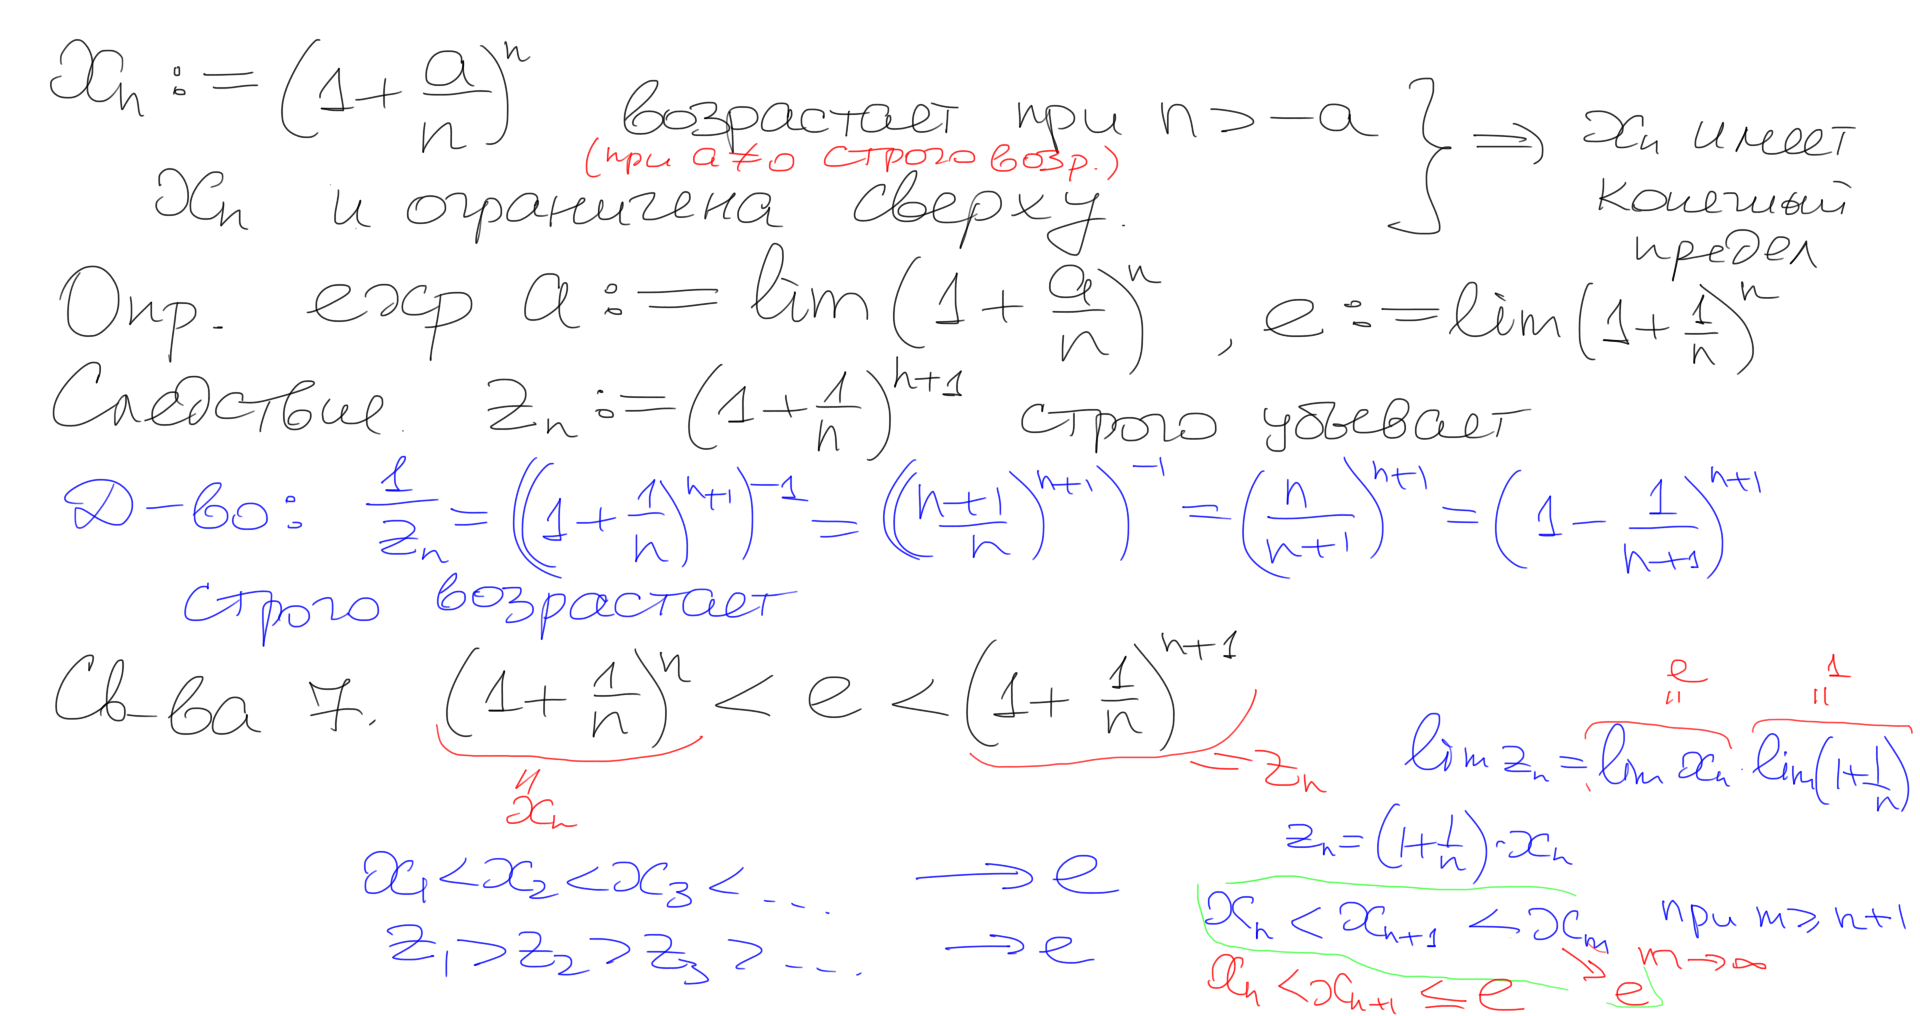 xₙ := (1 + a/n)ⁿ возрастает при n > -a } ⇒ xₙ имеет
(при a ≠ 0 строго возр.)
xₙ и ограничена сверху. конечный
предел
Опр. exp a := lim (1 + a/n)ⁿ , e := lim (1 + 1/n)ⁿ
Следствие. zₙ := (1 + 1/n)ⁿ⁺¹ строго убывает
Д-во: 1/zₙ = ((1 + 1/n)ⁿ⁺¹)⁻¹ = (((n+1)/n)ⁿ⁺¹)⁻¹ = (n/(n+1))ⁿ⁺¹ = (1 - 1/(n+1))ⁿ⁺¹
строго возрастает
Св-ва 7. (1 + 1/n)ⁿ < e < (1 + 1/n)ⁿ⁺¹
= xₙ
= zₙ
e = 1 =
lim zₙ = lim xₙ · lim (1 + 1/n)
zₙ = (1 + 1/n) · xₙ
x₁ < x₂ < x₃ < ... → e
z₁ > z₂ > z₃ > ... → e
xₙ < xₙ₊₁ < xₘ при m ≥ n+1
↘ e m → ∞
xₙ < xₙ₊₁ ≤ e